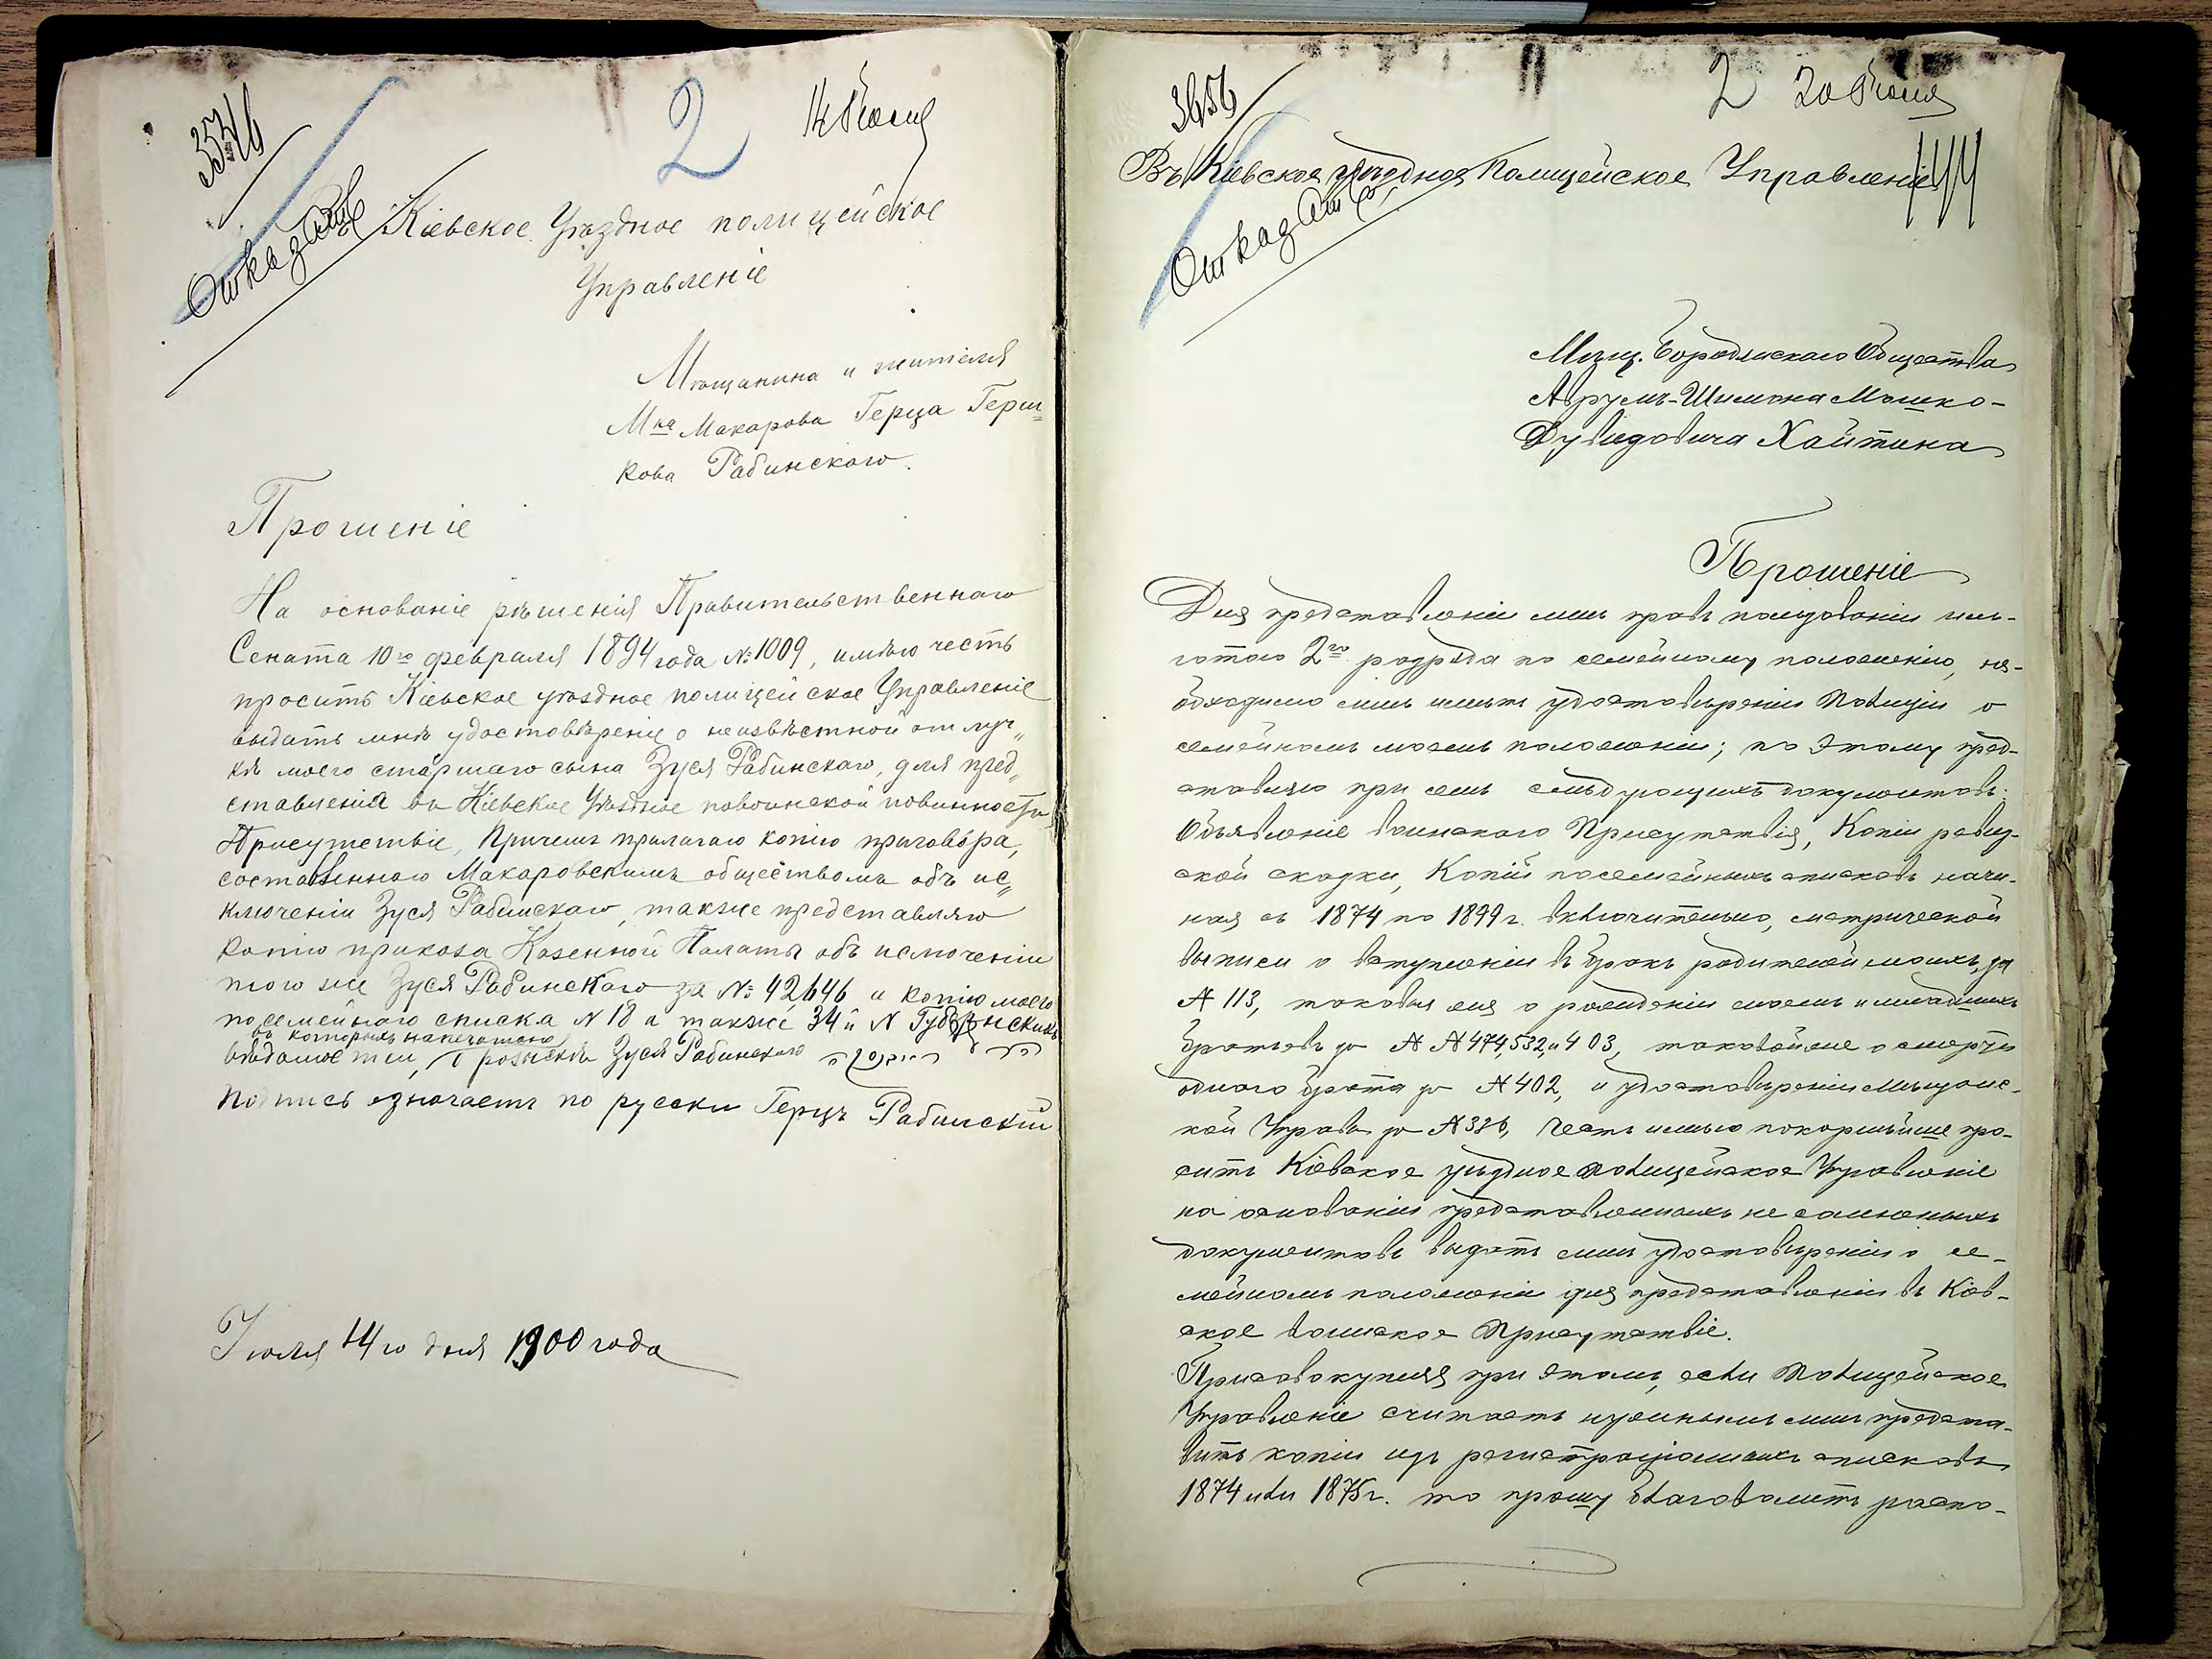 2
14 Іюля
Отказать
Кіевское Уѣздное полицейское
Управленіе
Мѣщанина и жителя
Мка Макарова Герца Герш=
кова Рабинскаго.
Прошеніе
На основаніе рѣшенія Правительственнаго
Сената 10го февраля 1894 года №1009, имѣю честь
просить Кіевское уѣздное полицейское Управленіе
выдать мнѣ удостовѣреніе о неизвѣстной отлуч„
кѣ моего старшаго сына Зуся Рабинскаго, для пред„
ставленія въ Кіевское Уѣздное повоинской повинности
Присутствіе, Причемъ прилагаю копію приговора,
составленнаго Макаровскимъ обществомъ объ ис„
ключеніи Зуся Рабинскаго, также представляю
копію приказа Казенной Палаты объ исключеніи
того же Зуся Рабинскаго за №42,646 и копію моего
посемейнаго списка №18 а также 34й № Губернскихъ
въ которыхъ напечатано
вѣдомостей, о розыскѣ Зуся Рабинскаго
Подпись означаетъ по русски Герцъ Рабинскій
Іюля 14го дня 1900 года
3656
2 20 Іюля
Въ Кіевское уѣздное Полицейское Управленіе
Отказать
Мѣщ. Бородянскаго Общества
Аврумъ-Шимона Мошко-
Дувидовича Хайтина
Прошеніе
Для представленія мнѣ правъ пользованія ль-
готою 2го разряда по семейному положенію, не-
обходимо мнѣ имѣть удостовѣреніе Полиціи о
семейномъ моемъ положеніи; по этому пред-
ставляю при семъ слѣдующихъ документовъ:
Объявленіе воинскаго Присутствія, Копіи ревиз-
ской сказки, Копій посемейныхъ списковъ начи-
ная съ 1874 по 1899 г. включительно, метрической
выписи о вступленіи въ бракъ родителей моихъ, за
№ 113, таковыя же о рожденіи моемъ и младшихъ
братьевъ за № № 474, 532, и 403, таковой же о смерти
одного брата за № 402, и удостовѣреніи Мѣщанс-
кой Управы за № 326, Честь имѣю покорнѣйше про-
сить Кіевское уѣздное Полицейское Управленіе
на основаніи представленныхъ не сомнѣнныхъ
документовъ выдать мнѣ удостовѣреніе о се-
мейномъ положеніи для представленія въ Кіев-
ское воинское Присутствіе.
Присовокупляя при этомъ, если Полицейское
Управленіе считаетъ нужнымъ мнѣ предста-
вить копіи изъ регистраціонныхъ списковъ
1874 или 1875 г. то прошу благоволить распо-